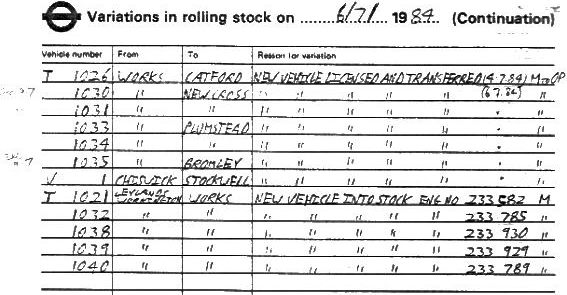 Variations in rolling stock on 6/7/ 1984 (Continuation)
Vehicle number From To Reason for variation
T 1026 WORKS CATFORD NEW VEHICLE LICENSED AND TRANSFERRED (4.7.84) M to OP
1030 " NEW CROSS " " " " " (6.7.84) "
1031 " " " " " " " " "
1033 " PLUMSTEAD " " " " " " "
1034 " " " " " " " " "
1035 " BROMLEY " " " " " " "
V 1 CHISWICK STOCKWELL " " " " " " "
T 1021 LEYLANDS WORKINGTON WORKS NEW VEHICLE INTO STOCK ENG NO 233 582 M
1032 " " " " " " " 233 785 "
1038 " " " " " " " 233 930 "
1039 " " " " " " " 233 929 "
1040 " " " " " " " 233 789 "